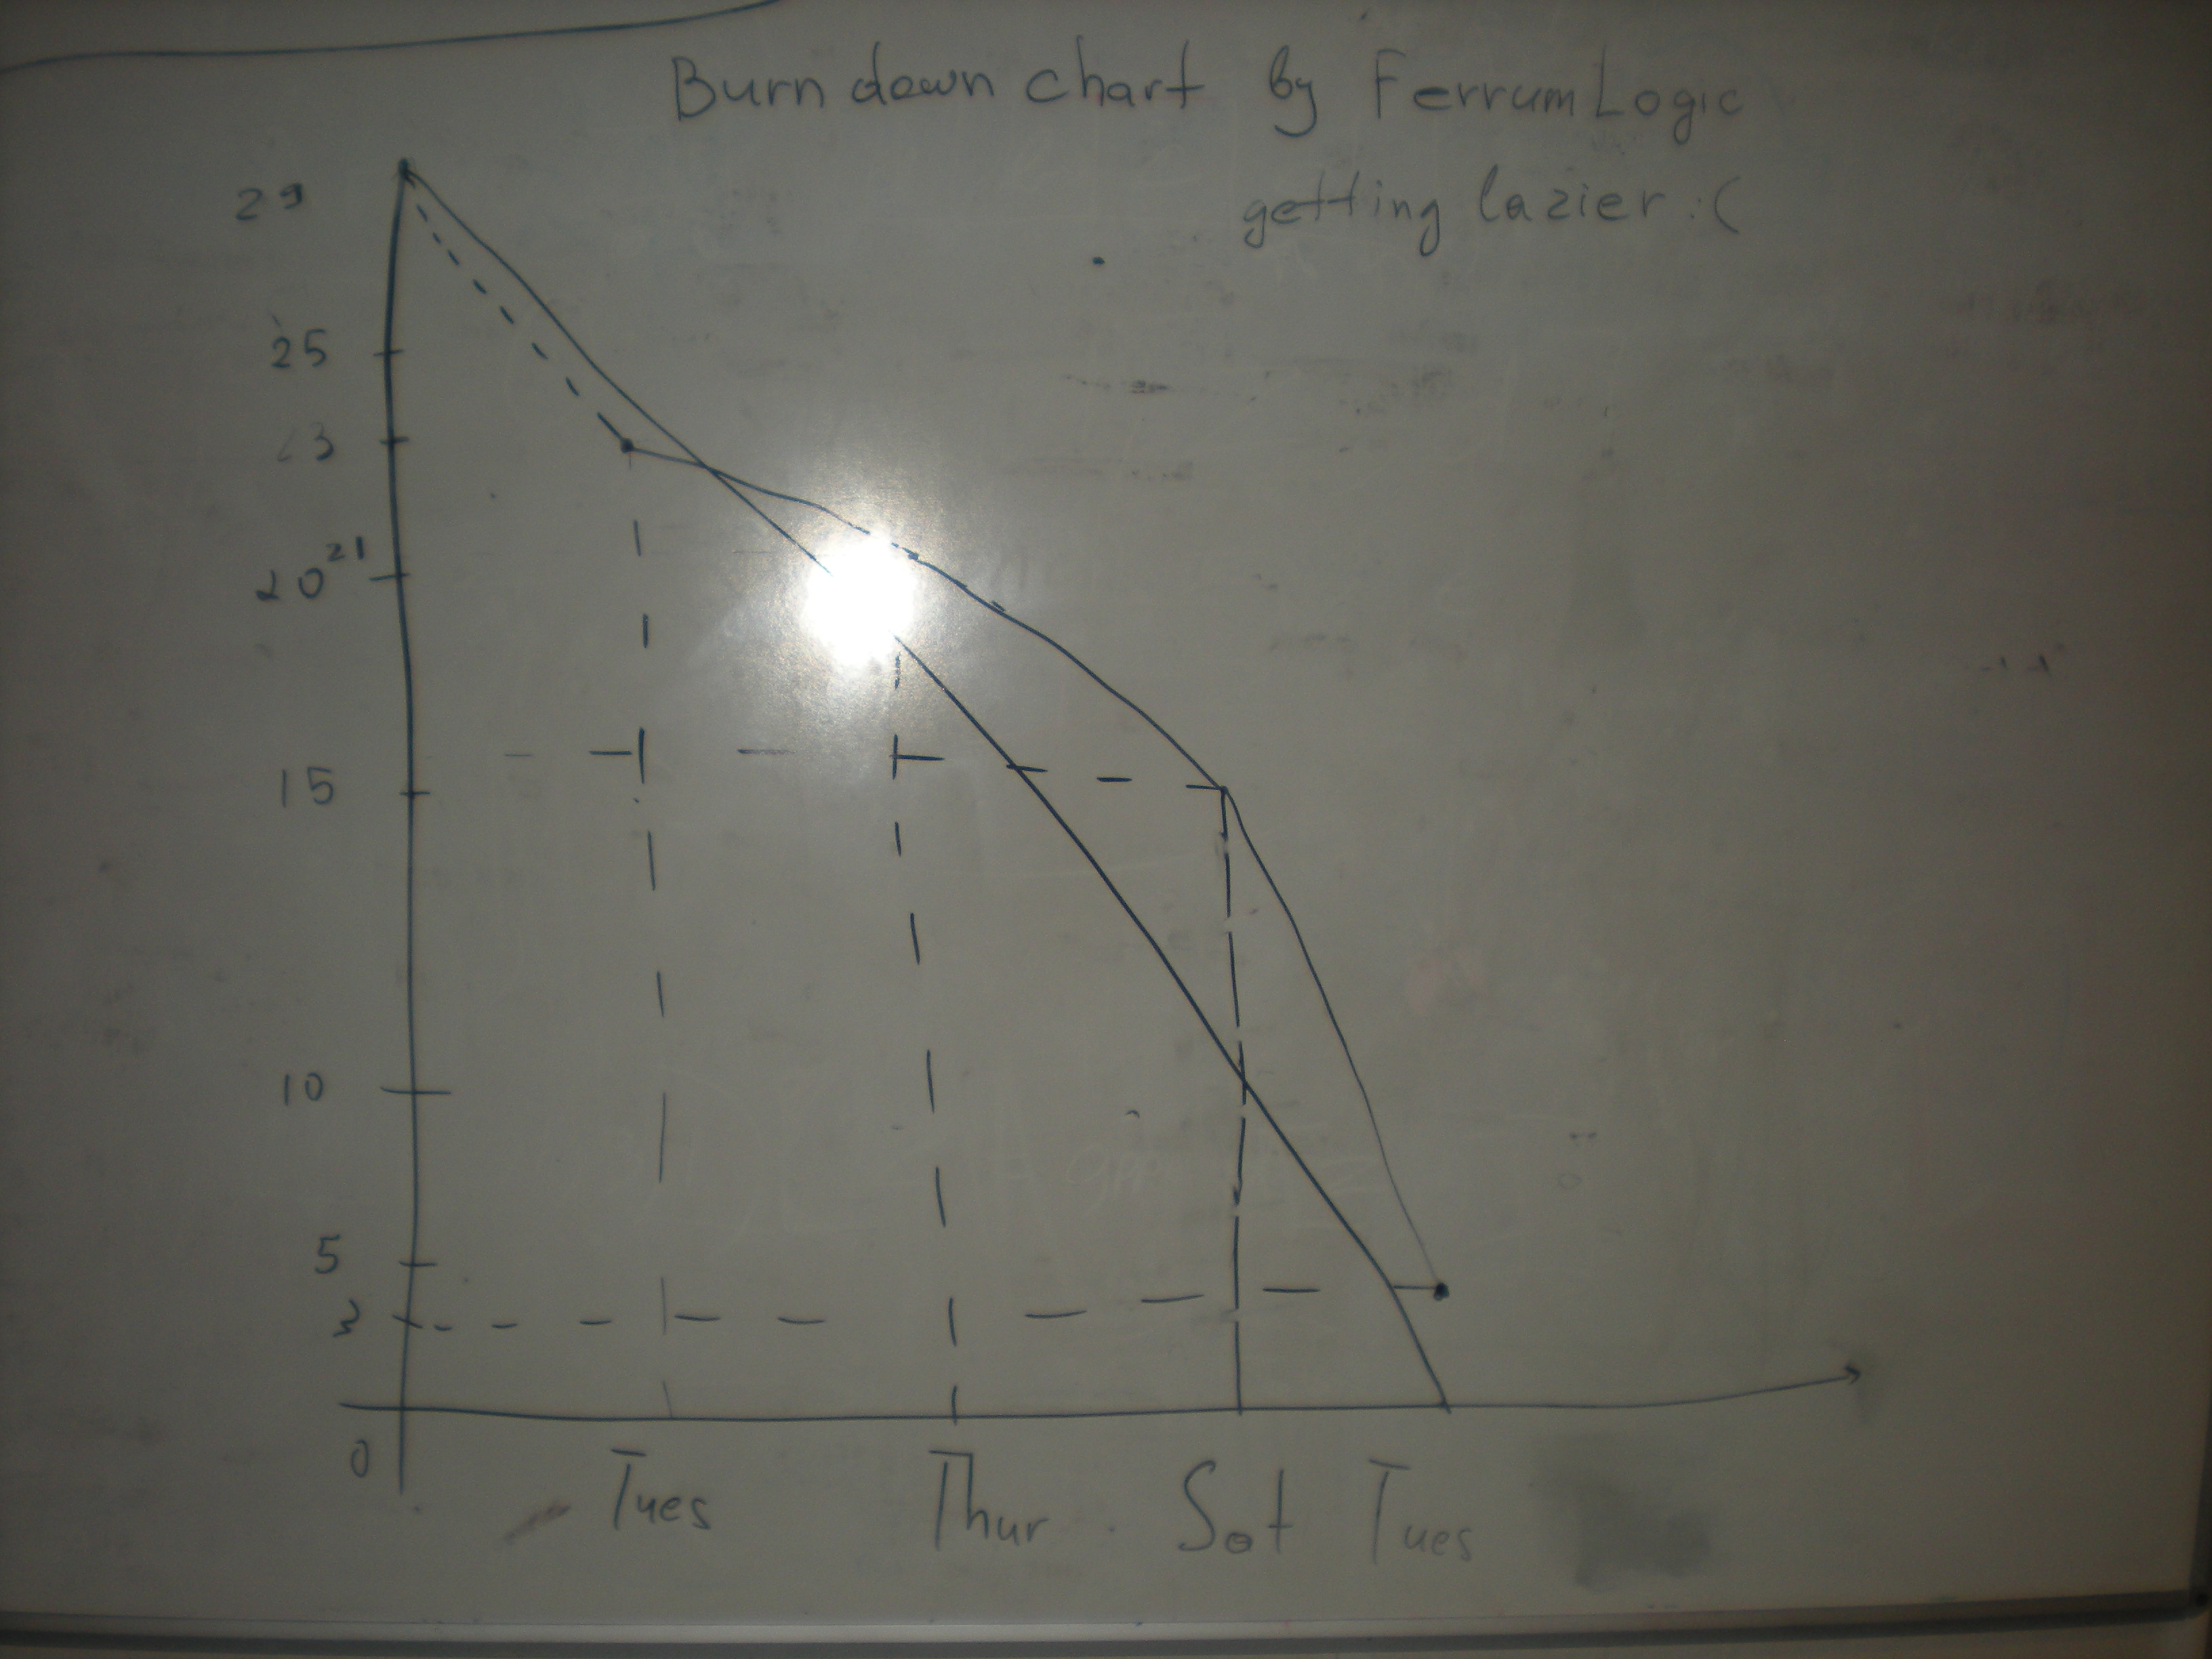 Burn down chart by FerrumLogic
getting lazier :(
29
25
23
21
20
15
10
5
3
0
Tues Thur Sat Tues